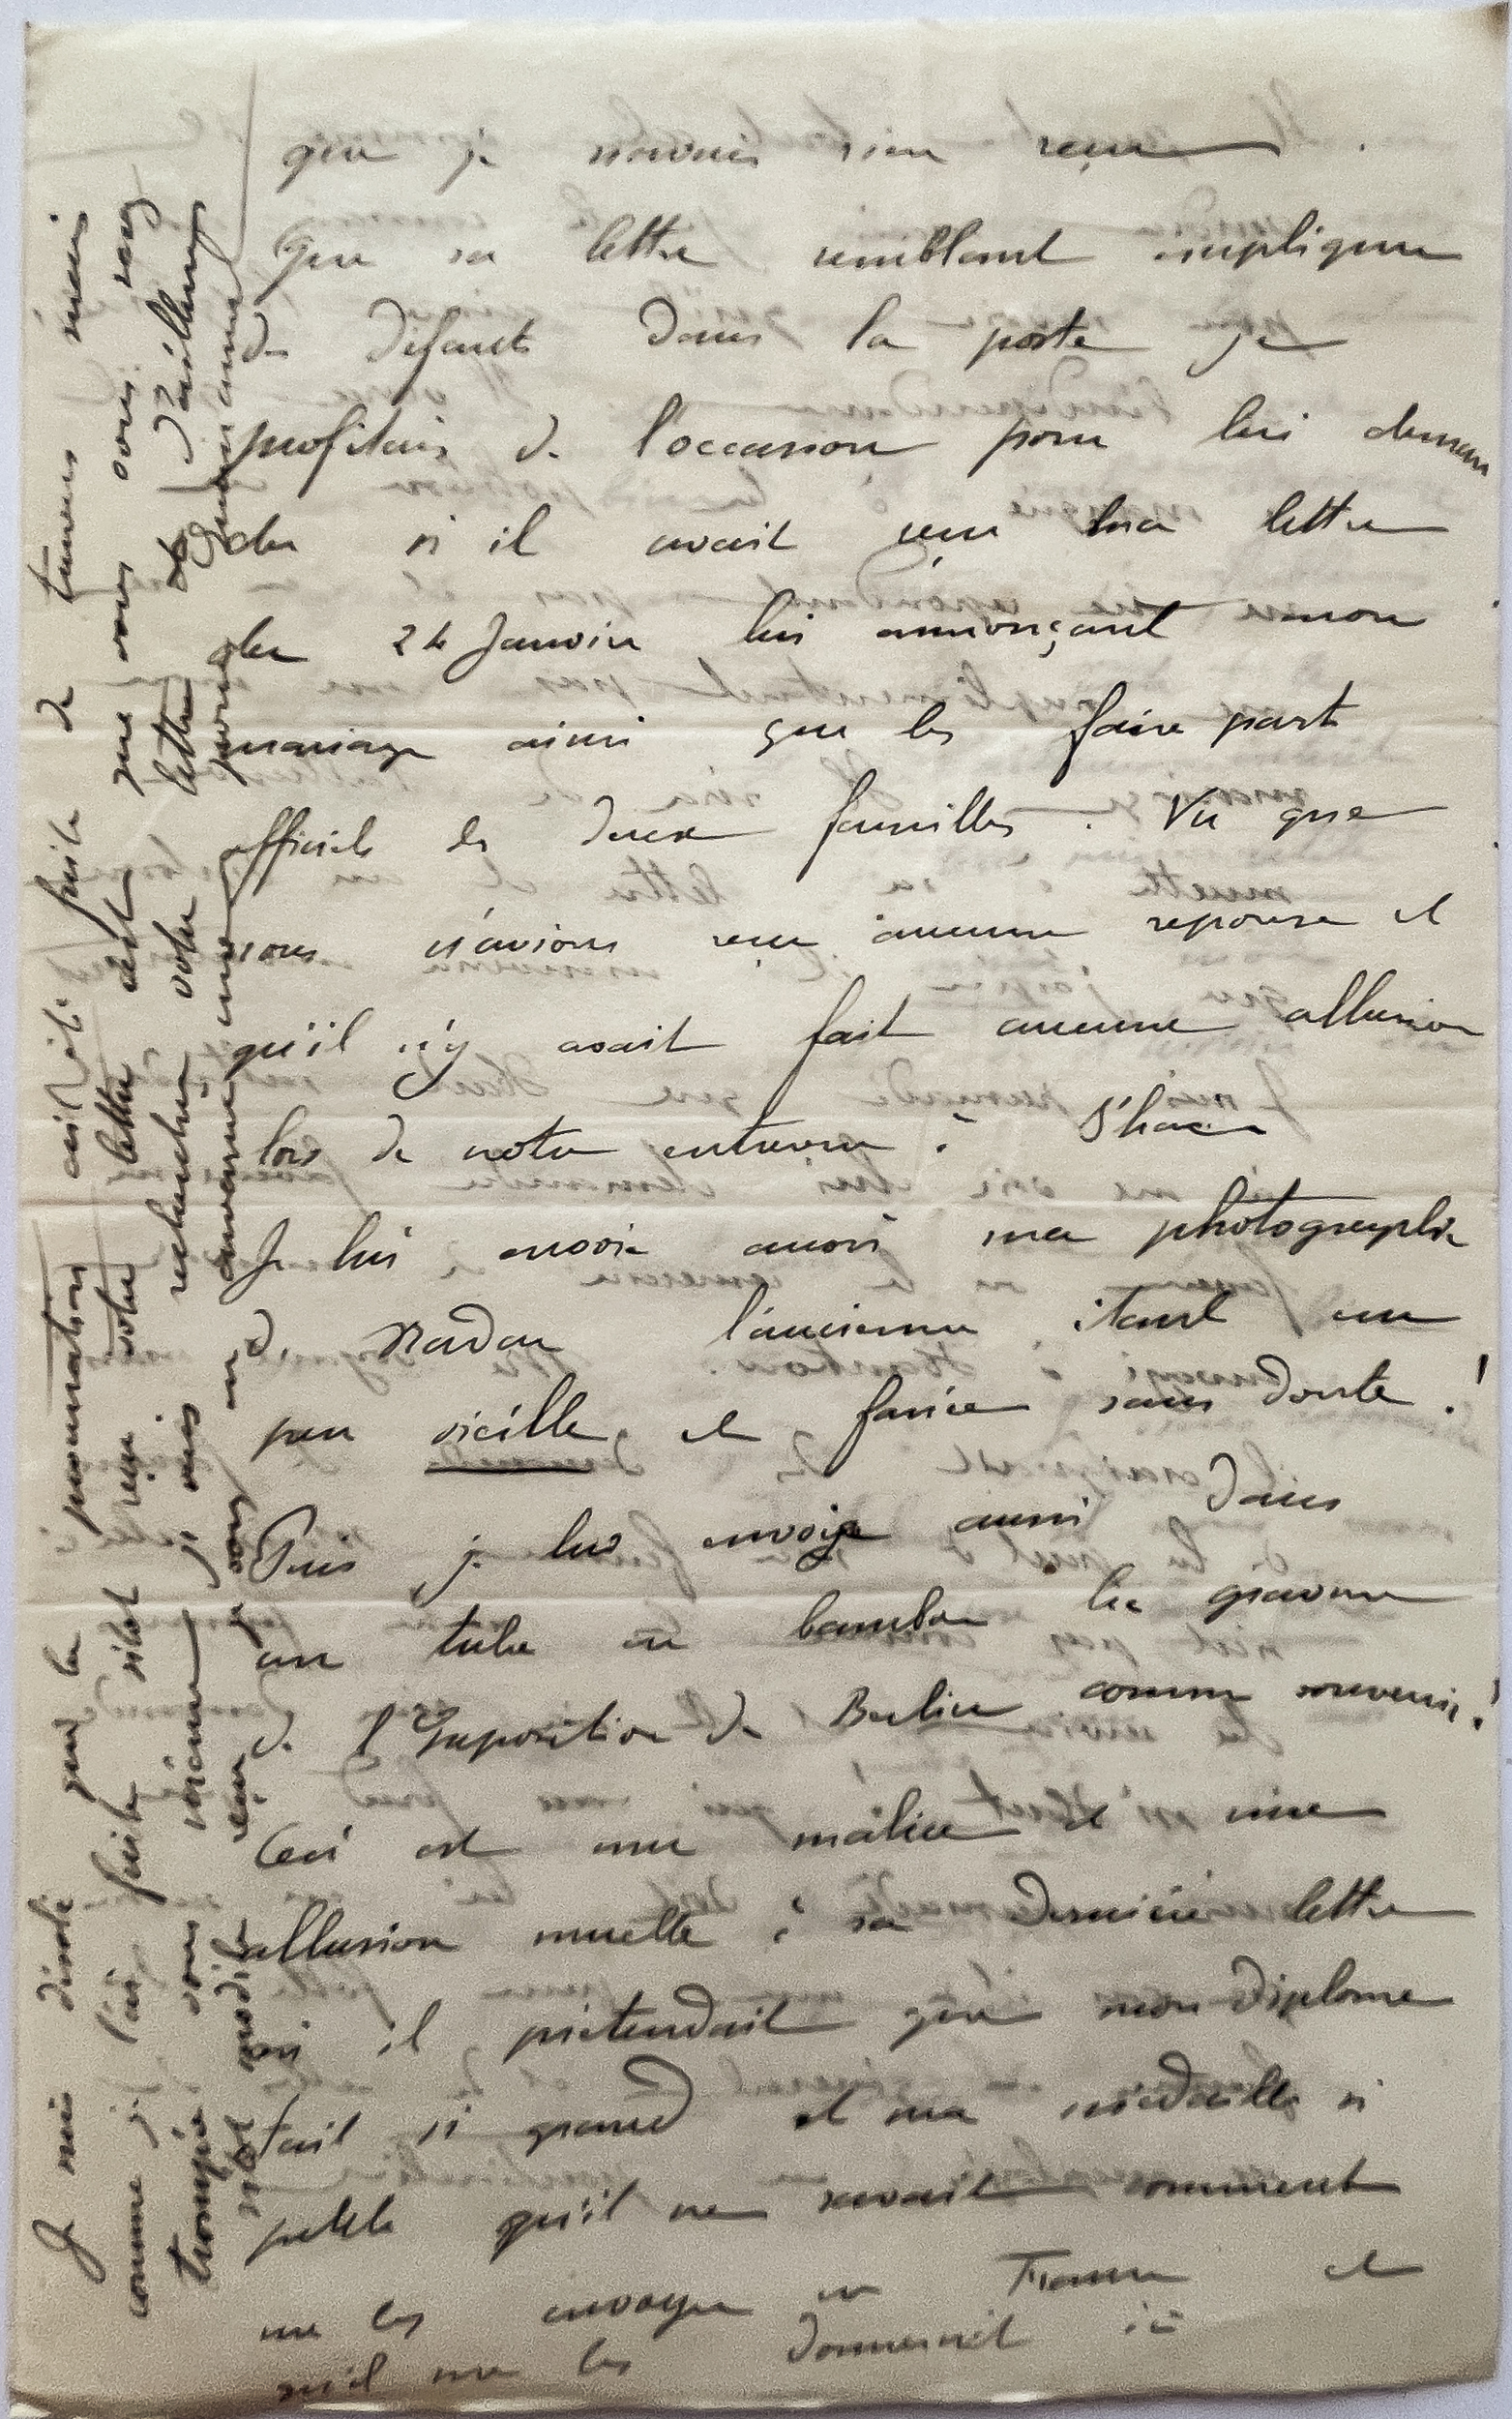 que je n'avais rien reçu.
Que sa lettre semblant expliquer
de défauts dans la poste je
profitais de l'occasion pour lui deman
der si il avait reçu ma lettre
du 24 Janvier lui annonçant mon
mariage ainsi que les faire part
officiels des deux familles. Vu que
nous n'avions reçu aucune reponse et
qu'il n'y avait fait aucune allusion
lors de notre entrevue à
Je lui envoie aussi ma photographie
de Nadar l'ancienne étant un
peu vieille et fanée sans doute!
Puis je lui envoie aussi dans
un tube en bambou la gravure
de l'Exposition de Berlin comme souvenir!
Ceci est une malice et une
allusion muette à sa dernière lettre
où il prétendait que mon diplome
était si grand et ma médaille si
petite qu'il ne savait comment
me les envoyer en France et
qu'il me les donnerait ici
Je suis désolé que la procuration ait été faite de travers mais
comme je l'ai faite sitôt reçu votre lettre dont vous vous
trompé vous même je vais rechercher votre lettre et d'ailleurs
sitôt reçu je vous en enverrai une pour